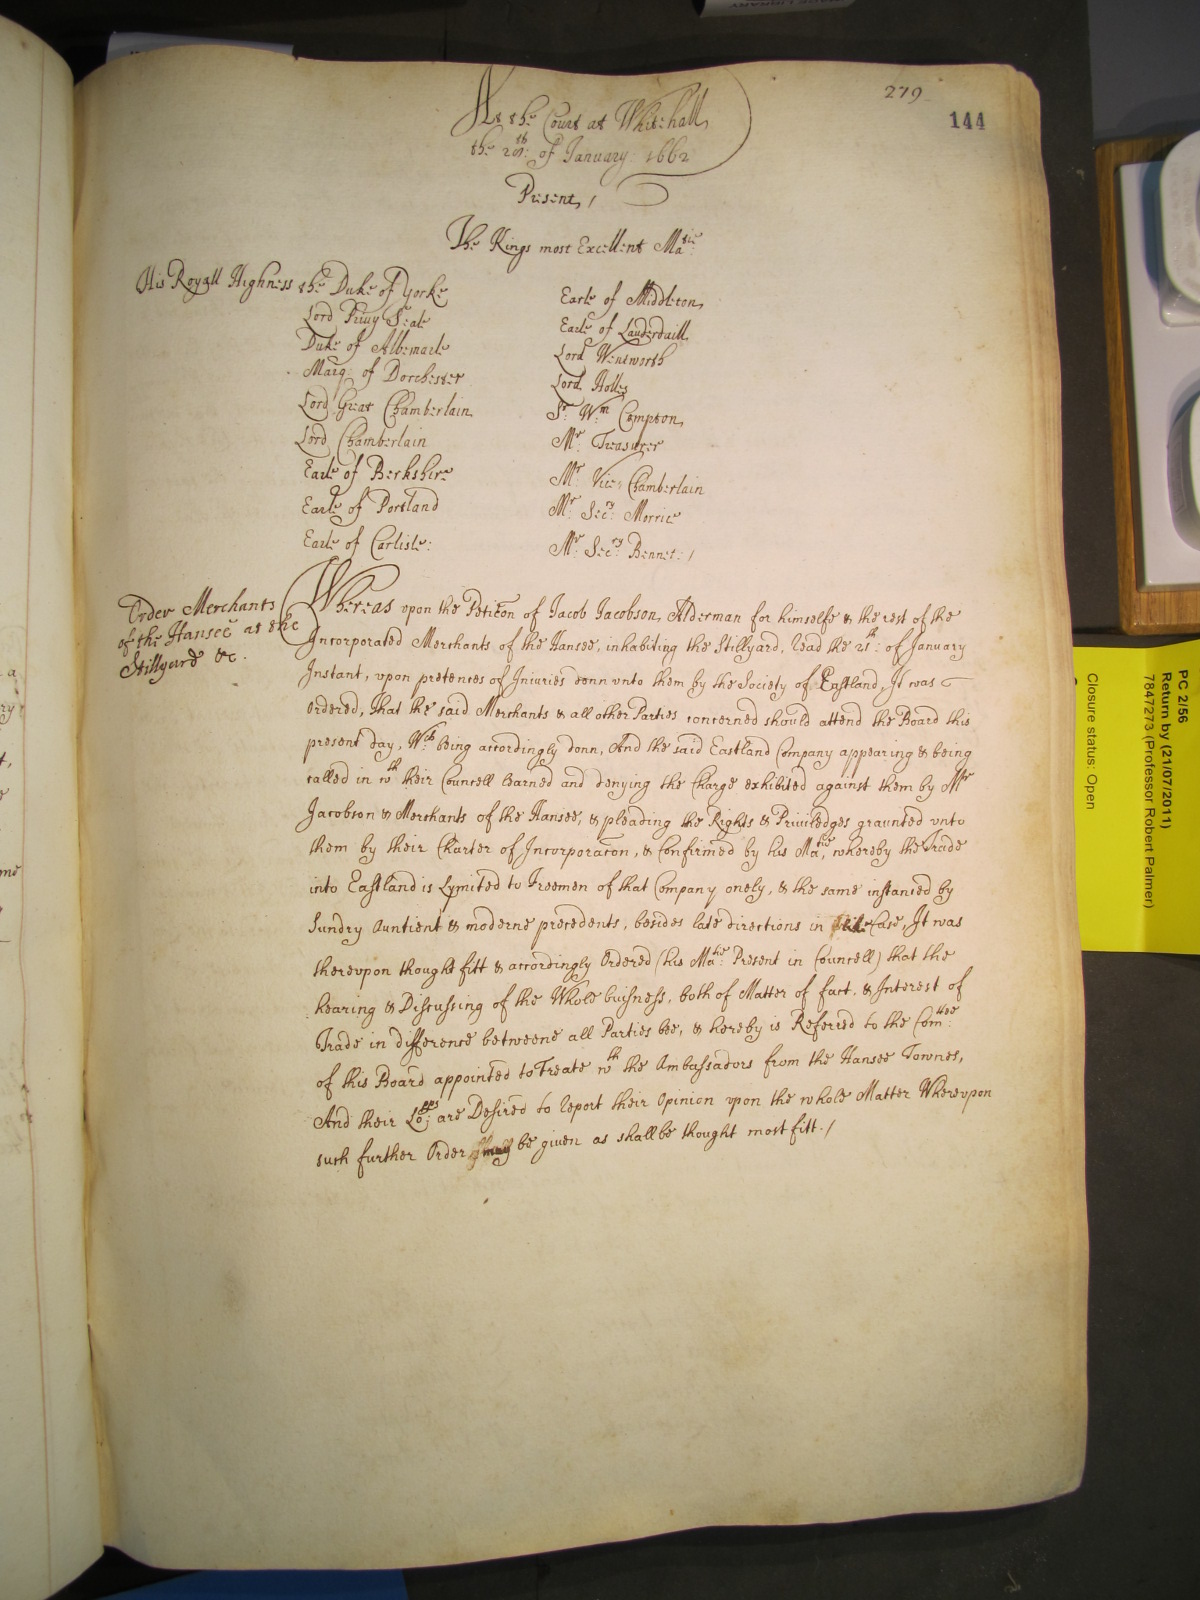 279
144
At the Court at Whitehall,
the 28th: of January: 1662
Present, /
The Kings most Excellent Matie
His Royall Highness the Duke of Yorke
Lord Privy Seale
Duke of Albemarle
Marq: of Dorchester
Lord Great Chamberlain
Lord Chamberlain
Earle of Berkshire
Earle of Portland
Earle of Carlisle:
Earle of Middleton,
Earle of Lauderdaill
Lord Wentworth
Lord Holles
Sr. Wm Compton,
Mr Treasurer
Mr. Vice, Chamberlain
Mr. Secry: Morrice
Mr. Secry: Bennet: /
Order Merchants
of the Hansee at the
Stillyard &c.
Whereas upon the Peticon of Jacob Jacobson, Alderman for himselfe & the rest of the
Incorporated Merchants of the Hansee, inhabiting the Stillyard, read the 21th: of January
Instant, upon pretences of Injuries donn vnto them by the Society of Eastland, It was
Ordered, that the said Merchants & all other Parties concerned should attend the Board this
present day, Wch being accordingly donn, And the said Eastland Company appearing & being
called in wth their Councell learned and denying the Charge exhibited against them by Mr
Jacobson & Merchants of the Hansee, & pleading the Rights & Priviledges graunted vnto
them by their Charter of Incorporacon, & confirmed by his Matie, whereby the Trade
into Eastland is Lymited to Freemen of that Company onely, & the same instanced by
Sundry Auntient & moderne precedents, besides late directions in like Case, It was
thereupon thought fitt & accordingly Ordered (his Matie: Present in Councell) that the
hearing & Discussing of the Whole buisness, both of Matter of fact, & Interest of
Trade in difference betweene all Parties bee, & hereby is Referred to the Comttee:
of this Board appointed to Treate wth the Ambassadors from the Hansee Townes,
And their Lopps: are Desired to report their Opinion vpon the whole Matter Wherevpon
such further Order may be given as shall be thought most fitt. /
PC 2/56
Return by (21/07/2011)
7847273 (Professor Robert Palmer)
Closure status: Open